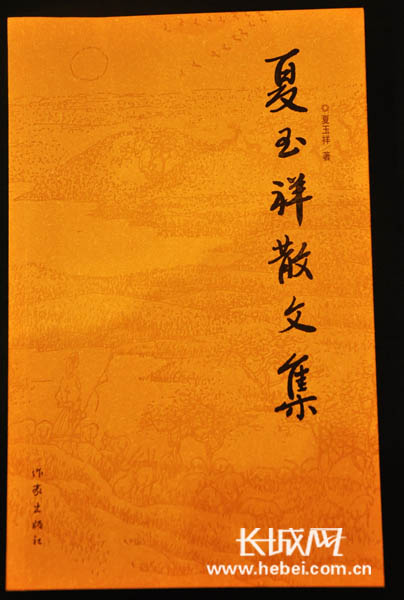 夏玉祥散文集
◎夏玉祥 著
作家出版社
长城网
www.hebei.com.cn